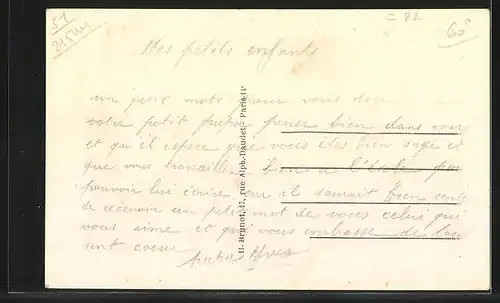 51
215M
C 92
60
Mes petits enfants
un petit mots pour vous dire
votre petit papa pense bien dans vous
et qu il espere que vous etes bien sage et
que vous travaillez bien a l'école pour
pouvoir lui écrire car il saurait bien content
de recevoir un petit mot de vous celui qui
vous aime et qui vous embrasse de tou
sont coeur
H. Brunot, 17, rue Alph.-Daudet, Paris-14e